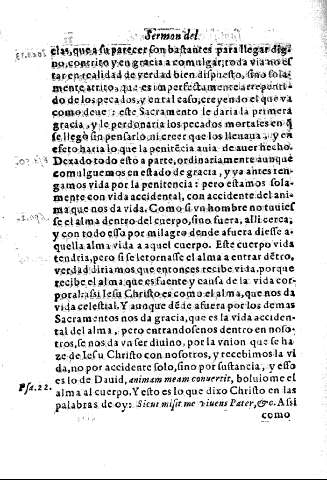 Sermon del
cias, que a su parecer son bastantes para llegar dig
no, contrito y en gracia a comulgar, toda via no es
tar en realidad de verdad bien dispuesto, sino sola-
mente atrito, que es imperfectamente arrepenti-
do de los pecados, y en tal caso, creyendo el que va
como deue: este Sacramento le daria la primera
gracia, y le perdonaria los pecados mortales en q̃
se llegò sin pensarlo, ni creer que los lleuaua, y en
efeto haria lo que la penitẽcia auia de auer hecho.
Dexado todo esto a parte, ordinariamente aunque
comulguemos en estado de gracia, y ya antes ren-
gamos vida por la penitencia: pero estamos sola-
mente con vida accidental, con accidente del ani-
ma que nos da vida. Como si vn hombre no tuuies
se el alma dentro del cuerpo, sino fuera, alli cerca;
y con todo esso por milagro dende afuera diesse a-
quella alma vida a aquel cuerpo. Este cuerpo vida
tendria, pero si se letornasse el alma a entrar dẽtro,
verdad diriamos que entonces recibe vida, porque
recibe el alma que es fuente y causa de la vida cor-
poral: assi Iesu Christo es como el alma, que nos da
vida celestial. Y aunque dẽde afuera por los demas
Sacramentos nos da gracia, que es la vida acciden-
tal del alma, pero entrandosenos dentro en noso-
tros, se nos da vn ser diuino, por la vnion que se ha-
ze de Iesu Christo con nosotros, y recebimos la vi
da, no por accidente solo, sino por sustancia, y esso
Psa. 22. es lo de Dauid, animam meam conuertit, boluiome el
alma al cuerpo. Y esto es lo que dixo Christo en las
palabras de oy: Sicut misit me viuens Pater, &c. Assi
como